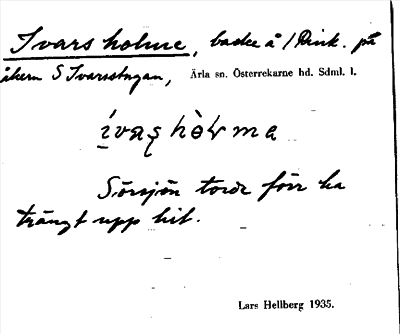 Ivarsholme, backe å /Rink. på
åkern S Ivarsstugan, Ärla sn. Österrekarne hd. Sdml. l.
Sörsjön torde förr ha
trängt upp hit.
Lars Hellberg 1935.